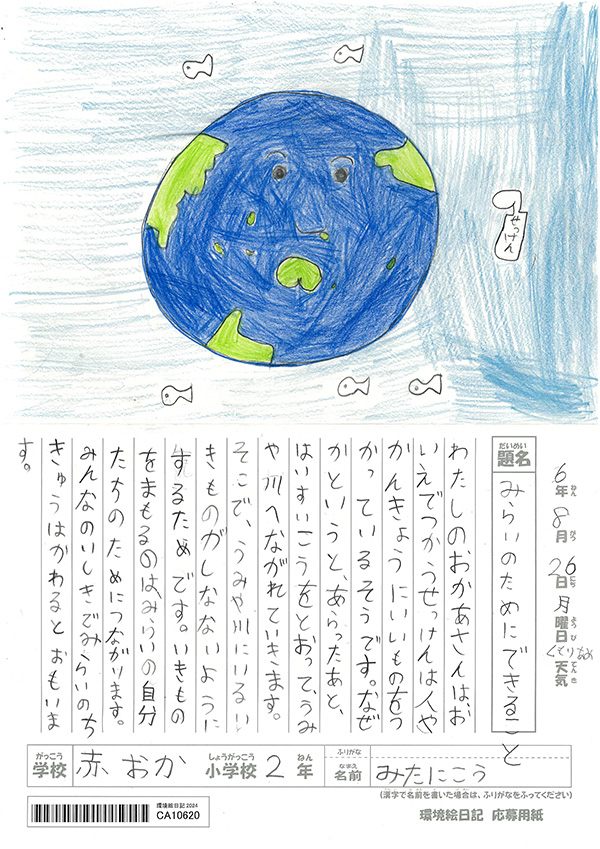 せっけん
6年 8月 26日 月曜日 くもり 天気
ねん がつ にち ようび てんき
だいめい
題名 みらいのためにできること
わたしのおかあさんは、お
いえでつかうせっけんは人や
かんきょうにいいものをつ
かっているそうです。なぜ
かというと、あらったあと、
はいすいこうをとおって、うみ
や川へながれていきます。
そこで、うみや川にいるい
きものがしなないように
するためです。いきもの
をまもるのは、みらいの自分
たちのためにつながります。
みんなのいしきでみらいのち
きゅうはかわるとおもいま
す。
がっこう しょうがっこう ねん ふりがな
学校 赤おか 小学校 2年
なまえ
名前 みたにこう
(漢字で名前を書いた場合は、ふりがなをふってください)
環境絵日記 2024
CA10620
環境絵日記 応募用紙